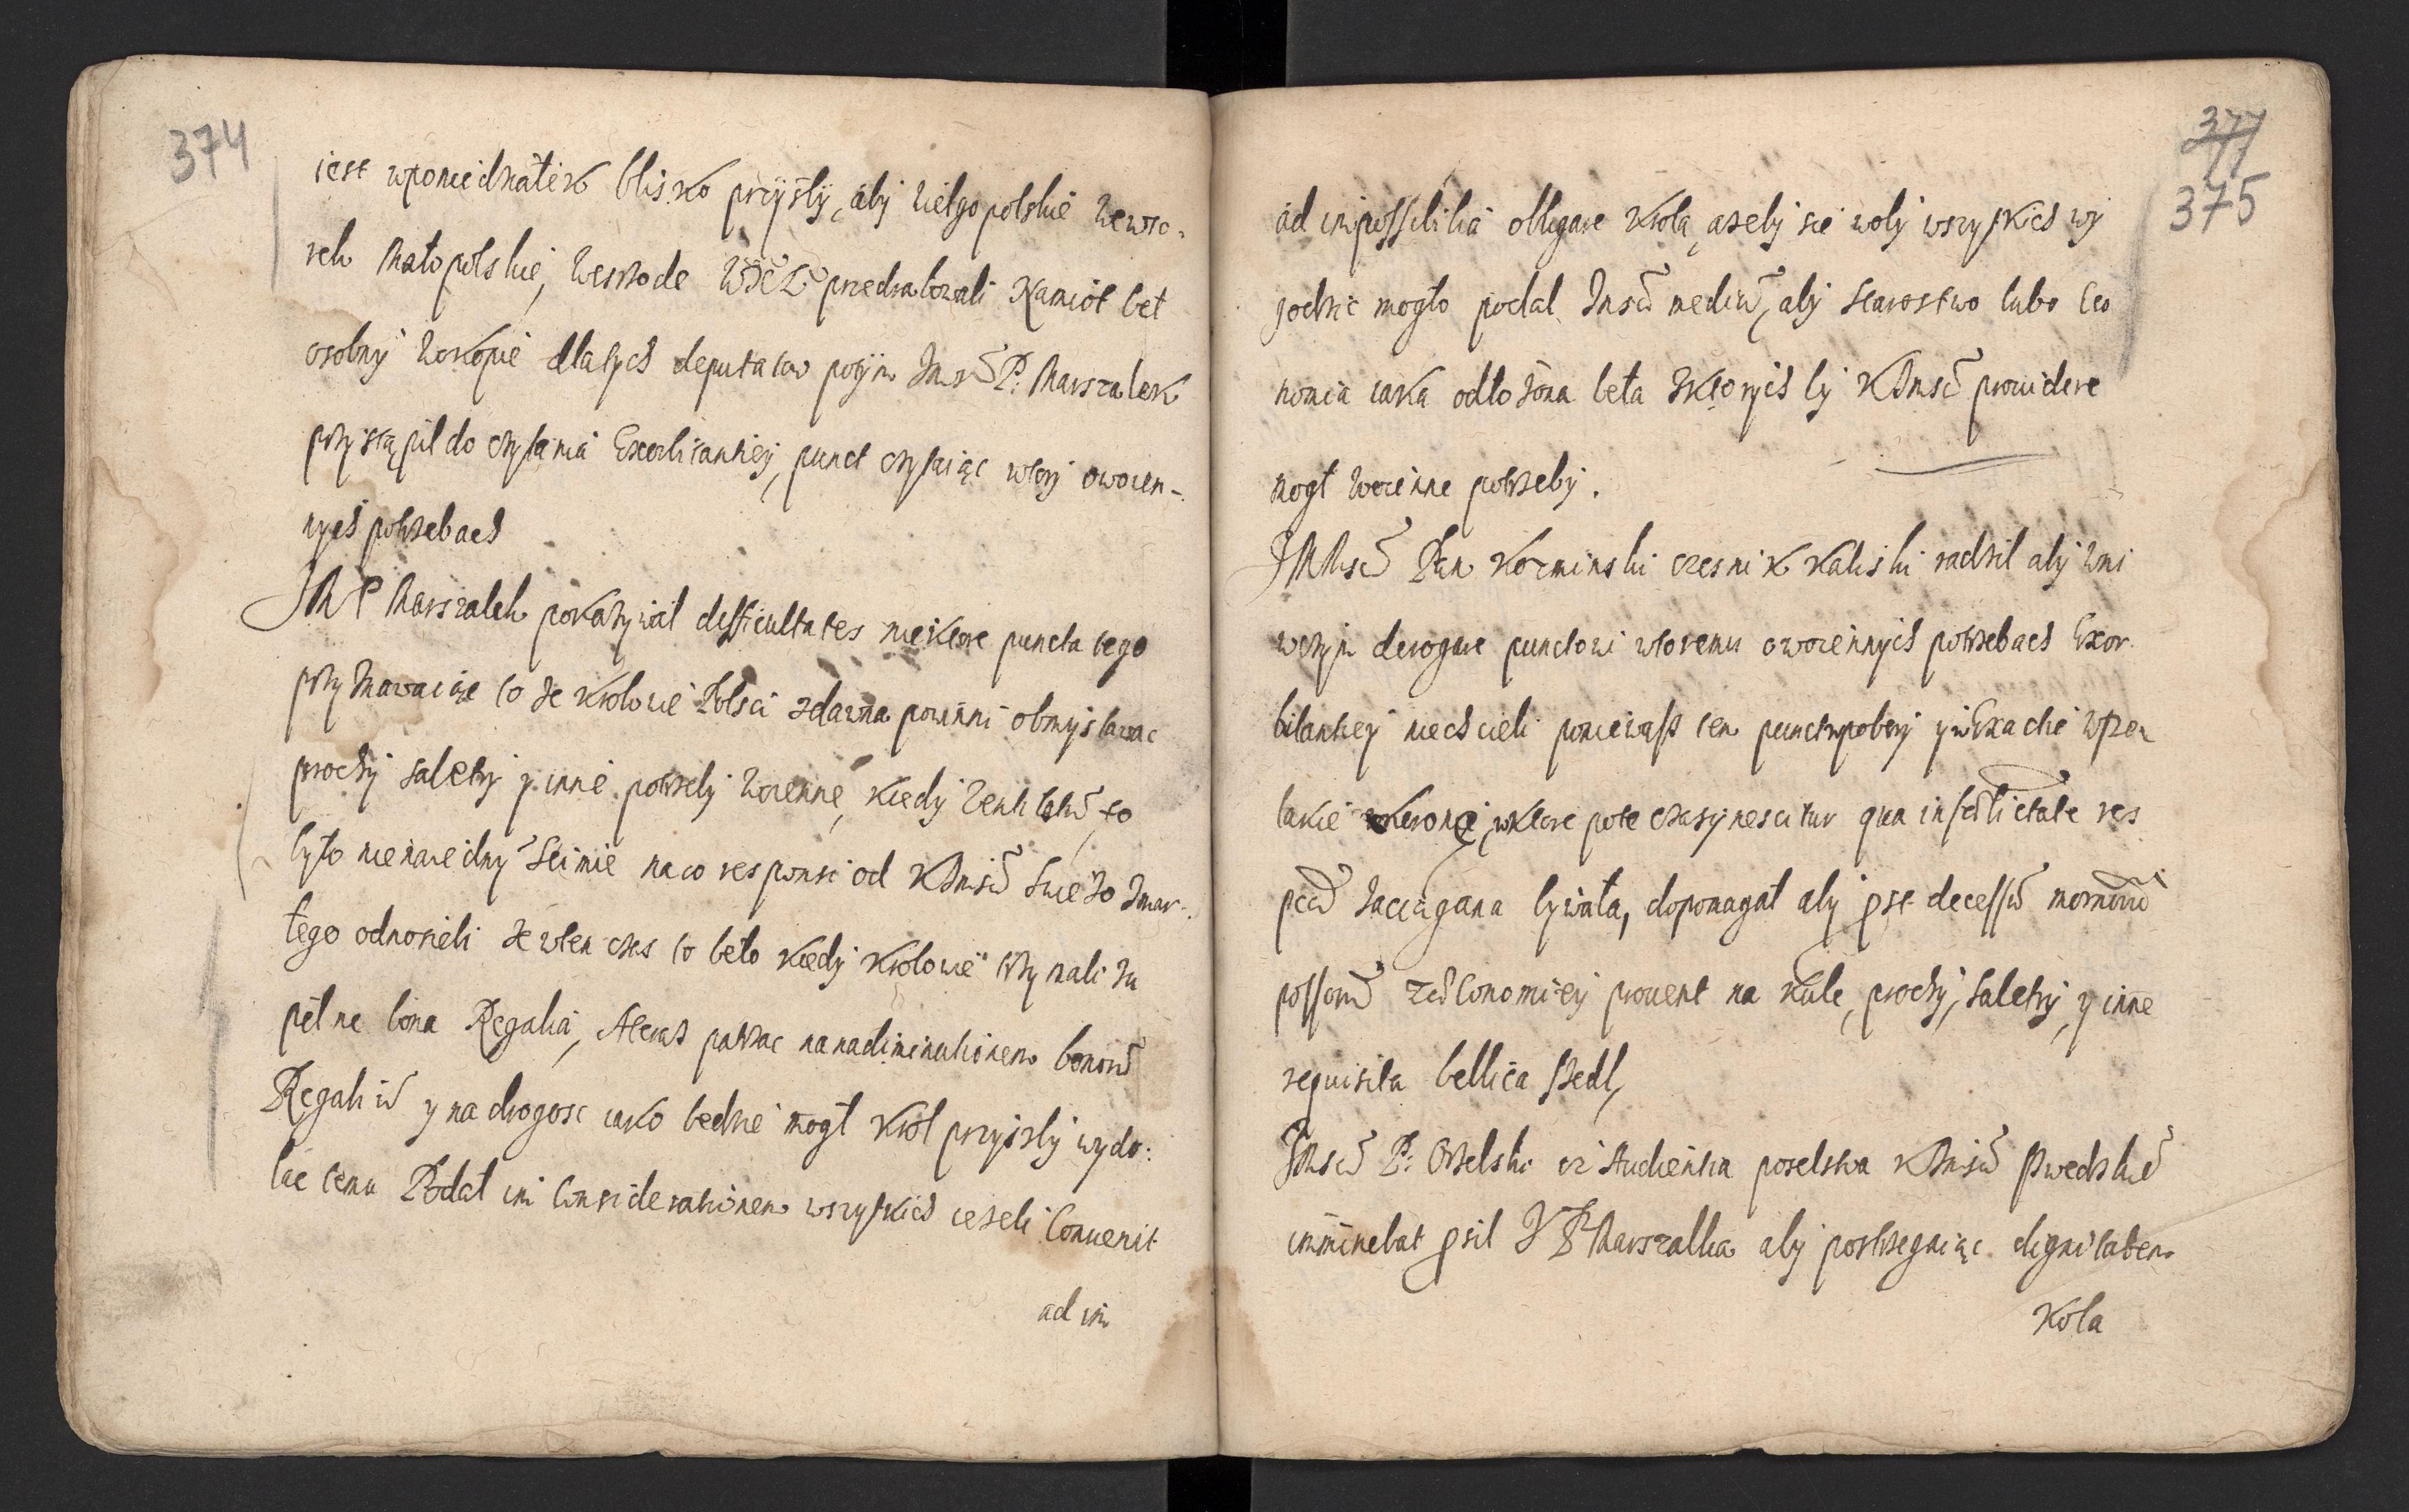 374
iest wponiedziałek blisko przyszły, aby Wielgopolskie we wto-
rek Małopolskie, we srzode WXL przedrabowali Namiot bet
osobny wokopie dlatych deputatow potym Jmsć P: Marszalek
przystąpił do czytania Exorbitantiey, punct czytaiąc wtory owoien-
nych potrzebach
JM P Marszalek pokazywał difficultates niektore puncta tego
przyznawaiąc to ze Krolowie Polsci zdawna powinni obmyslawac
prochy saletry y inne potrzeby woienne, kiedy
było nienaiednym Seimie na co responsi od KJmsci swiezo zmar-
łego odnosieli ze wten czas to beło kiedy Krolowie trzymali zu
pełne bona Regalia, A teraz patrzac na nadiminutionem bonorum
Regalium y na drogosc iako bedzie mogł Krol przyszły wydo:
lac temu Podał in considerationem wszystkich iezeli Conuenit
ad im
377
375
ad impossibilia obligare Krola, azeby sie woly wszystkich wy
godzic mogło podal Jmsć medium, aby starostwo lubo eco
nomia iaka odłozona beła zktorych by KJmsć prouidere
mogł woienne potrzeby.
JMMsć Pan Kozminski czesnik Kaliski radził aby wni
wczym derogare punctowi wtoremu owoiennych potrzebach Exor-
bitantiey niechcieli poniewasz ten punct wpobory y wExactie wpra
takie, wktore pote czasy nescitur qua infelicitate res
publica zaciągana bywała, dopomagał aby post decessum modernorum
possessorum zEconomiey prouent na kule, prochy, saletry, y inne
requisita bellica szedł,
JMsć P: Orzelski iz Audientia poselstwa KJmsci szwedzkie
imminebat prosił JP Marszalka aby postrzegaiąc dignitatem
Kola